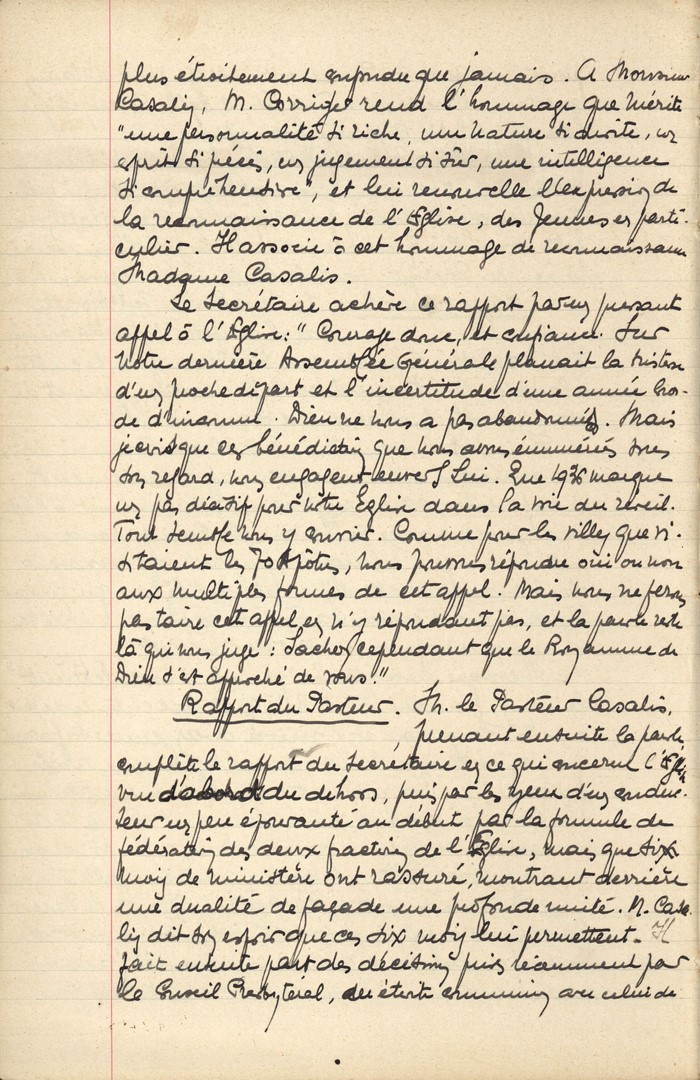 plus étroitement confondu que jamais. A Monsieur
Casalis, M. Corriger rend l'hommage que mérite
"une personnalité si riche, une nature si droite, un
esprit si précis, un jugement si sûr, une intelligence
si compréhensive", et lui renouvelle l'expression de
la reconnaissance de l'Eglise, des Jeunes en parti-
culier. Il associe à cet hommage de reconnaissance
Madame Casalis.
Le Secrétaire achève ce rapport par un pressant
appel à l'Eglise: "Courage donc, et confiance. Sur
notre dernière Assemblée Générale planait la tristesse
d'un proche départ et l'incertitude d'une année lour-
de d'inconnu. Dieu ne nous a pas abandonnés. Mais
je crois que ces bénédictions que nous avons énumérées sous
son regard, nous engagent envers Lui. Que 1936 marque
un pas décisif pour notre Eglise dans la voie du réveil.
Tout semble nous y convier. Comme pour les villes que vi-
sitaient les 70 Apôtres, nous pouvons répondre oui ou non
aux multiples formes de cet appel. Mais nous ne ferons
pas taire cet appel en n'y répondant pas, et la parole reste
là qui nous juge: Sachez cependant que le Royaume de
Dieu s'est approché de vous."
Rapport du Pasteur. M. le Pasteur Casalis,
prenant ensuite la parole,
complète le rapport du Secrétaire en ce qui concerne l'Eglise
vue du dehors, puis par les yeux d'un conduc-
teur un peu épouvanté au début par la formule de
fédération des deux fractions de l'Eglise, mais que six
mois de ministère ont rassuré, montrant derrière
une dualité de façade une profonde unité. M. Casa-
lis dit son espoir que ces six mois lui permettent. Il
fait ensuite part des décisions prises récemment par
le Conseil Presbytéral, en étroite communion avec celui de